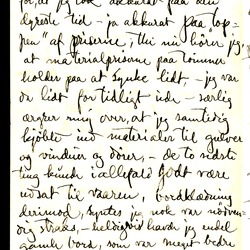 for, at jeg tog akkurat paa den
dyreste tid - ja akkurat paa "top-
pen" af priserne, thi nu hører jeg,
at materialpriserne paa tømmer
holder paa at synke lidt - jeg var
da lidt for tidligt ude - særlig
ærgrer mig over, at jeg samtidig
kjøbte ind materialer til gulver
og vinduer og dører, - de to sidste
ting kunde iallefald godt være
udsat til vaaren, bordklædning
derimod, syntes jeg nok var nødven-
dig straks, - heldigvis havde jeg endel
gamle bord, som var meget bedre